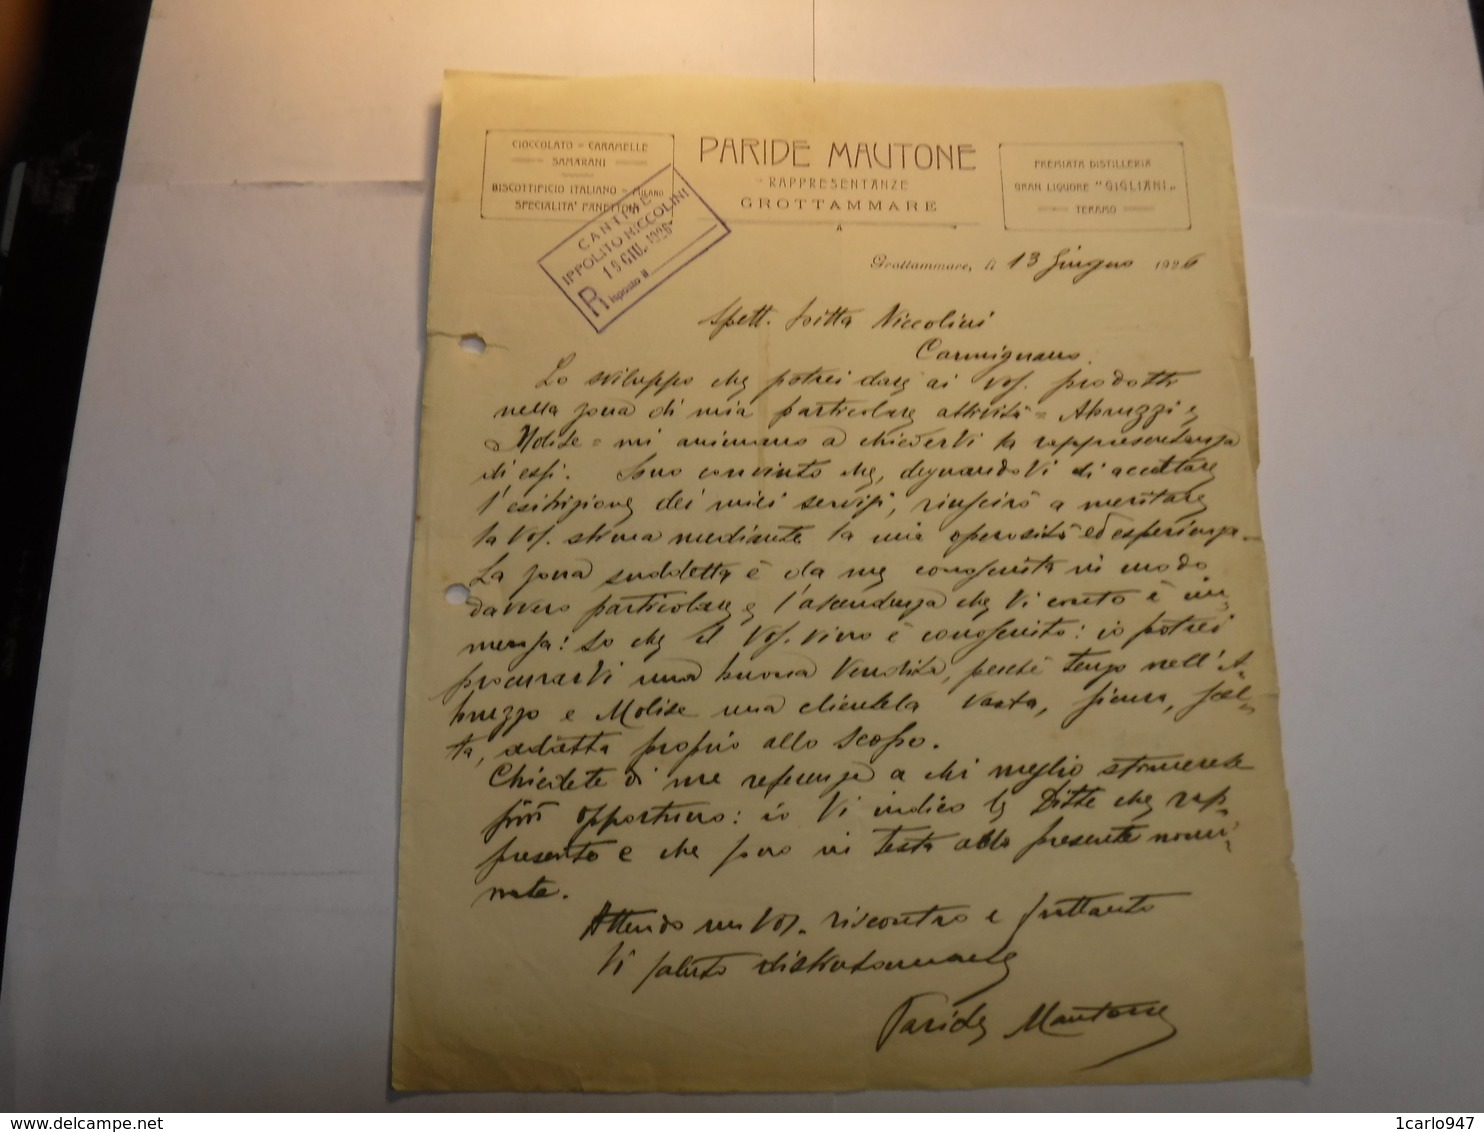 CIOCCOLATO - CARAMELLE
SAMARANI
BISCOTTIFICIO ITALIANO - MILANO
SPECIALITA' PANETTONI
PARIDE MAUTONE
RAPPRESENTANZE
GROTTAMMARE
PREMIATA DISTILLERIA
GRAN LIQUORE "GIGLIANI"
TERAMO
CANTINE
IPPOLITO NICCOLINI
GIU. 1926
Risposto il
Grottammare, li 13 Giugno 1926
Spett. Ditta Niccolini
Carmignano.
Lo sviluppo che potrei dare ai Vos. prodotti
nella zona di mia particolare attività = Abruzzi e
Molise = mi animano a chiederVi la rappresentanza
di essi. Sono convinto che, degnandoVi di accettare
l'esibizione dei miei servizi, riuscirò a meritare
la Vos. stima mediante la mia operosità ed esperienza.
La zona suddetta è da me conosciuta in modo
davvero particolare e l'ascendenza che Vi conto è im-
mensa: so che il Vos. vino è conosciuto: io potrei
procurarVi una buona vendita, perché tengo nell'A-
bruzzo e Molise una clientela vasta, sicura, scel-
ta, adatta proprio allo scopo.
Chiedete di me referenze a chi meglio stimerete
più opportuno: io Vi indico le Ditte che rap-
presento e che sono in testa alla presente nomi-
nate.
Attendo un Vos. riscontro e frattanto
Vi saluto distintamente
Paride Mautone
delcampe.net
1carlo947